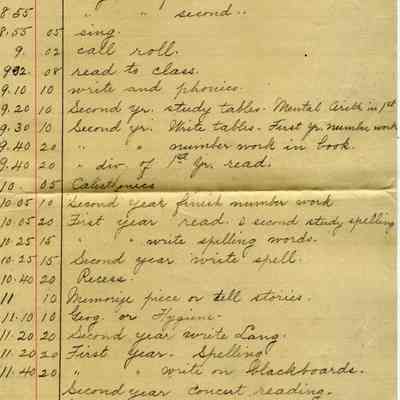 8.55 " " second..
8.55 05 sing.
9. 02 call roll.
9.02. 08 read to class.
9.10 10 write and phonics.
9.20 10 Second yr. study tables. Mental Arith in 1st
9.30 10 Second yr. Write tables. First yr. number work
9.40 20 " " number work in book.
9.40 20 " div. of 1st Yr. read.
10. 05 Calisthenics
10.05 10 Second year finish number work
10.05 20 First year read. & second study spelling
10.25 15 " " write spelling words.
10.25 15 Second year write spell.
10.40 20 Recess.
11 10 Memorize piece or tell stories.
11.10 10 Geog. or Hygiene.
11.20 20 Second year write Lang.
11.20 20 First Year. Spelling
11.40 20 " " write on blackboards.
Second year concert reading.